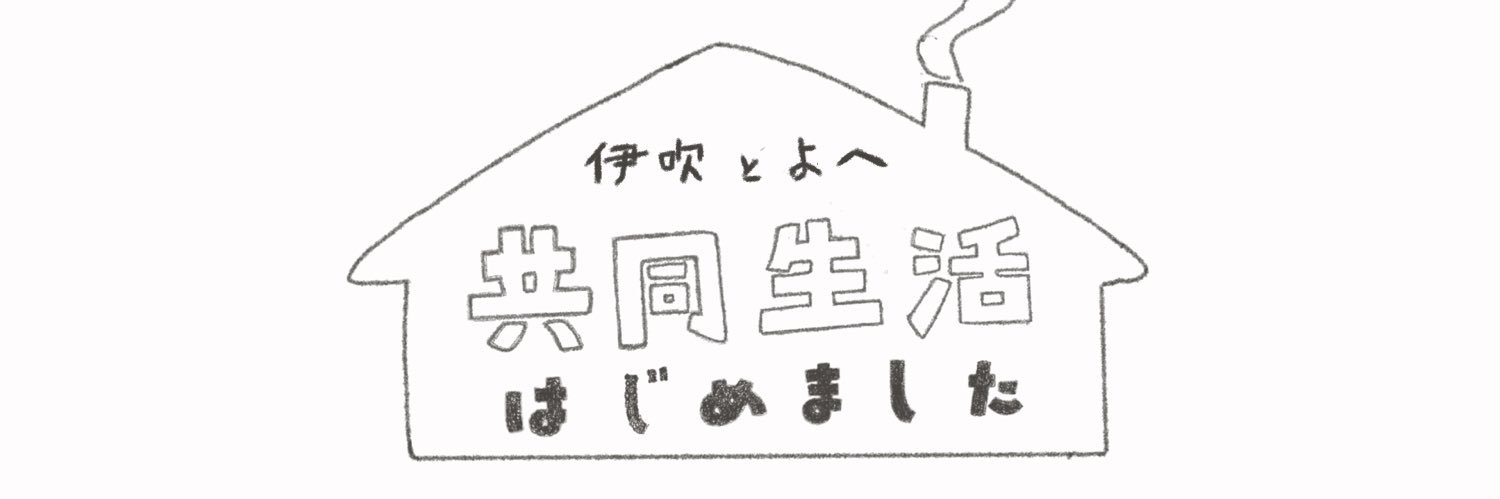 伊吹とよへ
共同生活
はじめました